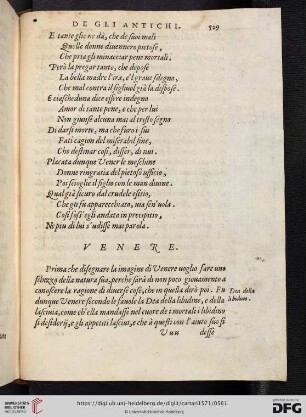 DE GLI ANTICHI. 529
E tanto glie ne dà, che de suoi mali
Quelle donne divennero pietose,
Che pria gli minacciar pene mortali.
Però la pregar tanto, che depose
La bella madre l'ira, e'l grave sdegno,
Che mal contra il figliuol già la dispose.
E ciascheduna dice essere indegno
Amor di tante pene, e che per lui
Non giunse alcuna mai al tristo segno
Di darsi morte, ma che furo i sui
Fati cagion del miserabil fine,
Che destinar così, disser, di nui.
Placata dunque Vener le meschine
Donne ringratia del pietoso ufficio,
Poi scioglie il figlio con le man divine.
Qual già sicuro dal crudele essitio,
Che gli fu apparecchiato, ma sen' vola.
Così fosse egli andato in precipitio,
Ne piu di lui s'udisse mai parola.
VENERE.
Prima che disegnare la imagine di Venere voglio fare uno
schizzo della natura sua, perche sarà di non poco giovamento a
conoscere la ragione di diverse cose, che in quella dirò poi. Fu Dea della
dunque Venere secondo le favole la Dea della libidine, e della libidine.
lascivia, come ch'ella mandasse nel cuore de i mortali i libidino
si desiderij, e gli appetiti lascivi, e che à questi con l'aiuto suo si
Vuu desse
http://digi.ub.uni-heidelberg.de/diglit/cartari1571/0561
© Universitätsbibliothek Heidelberg
UNIVERSITÄTS-
BIBLIOTHEK
HEIDELBERG
gefördert durch die
DFG